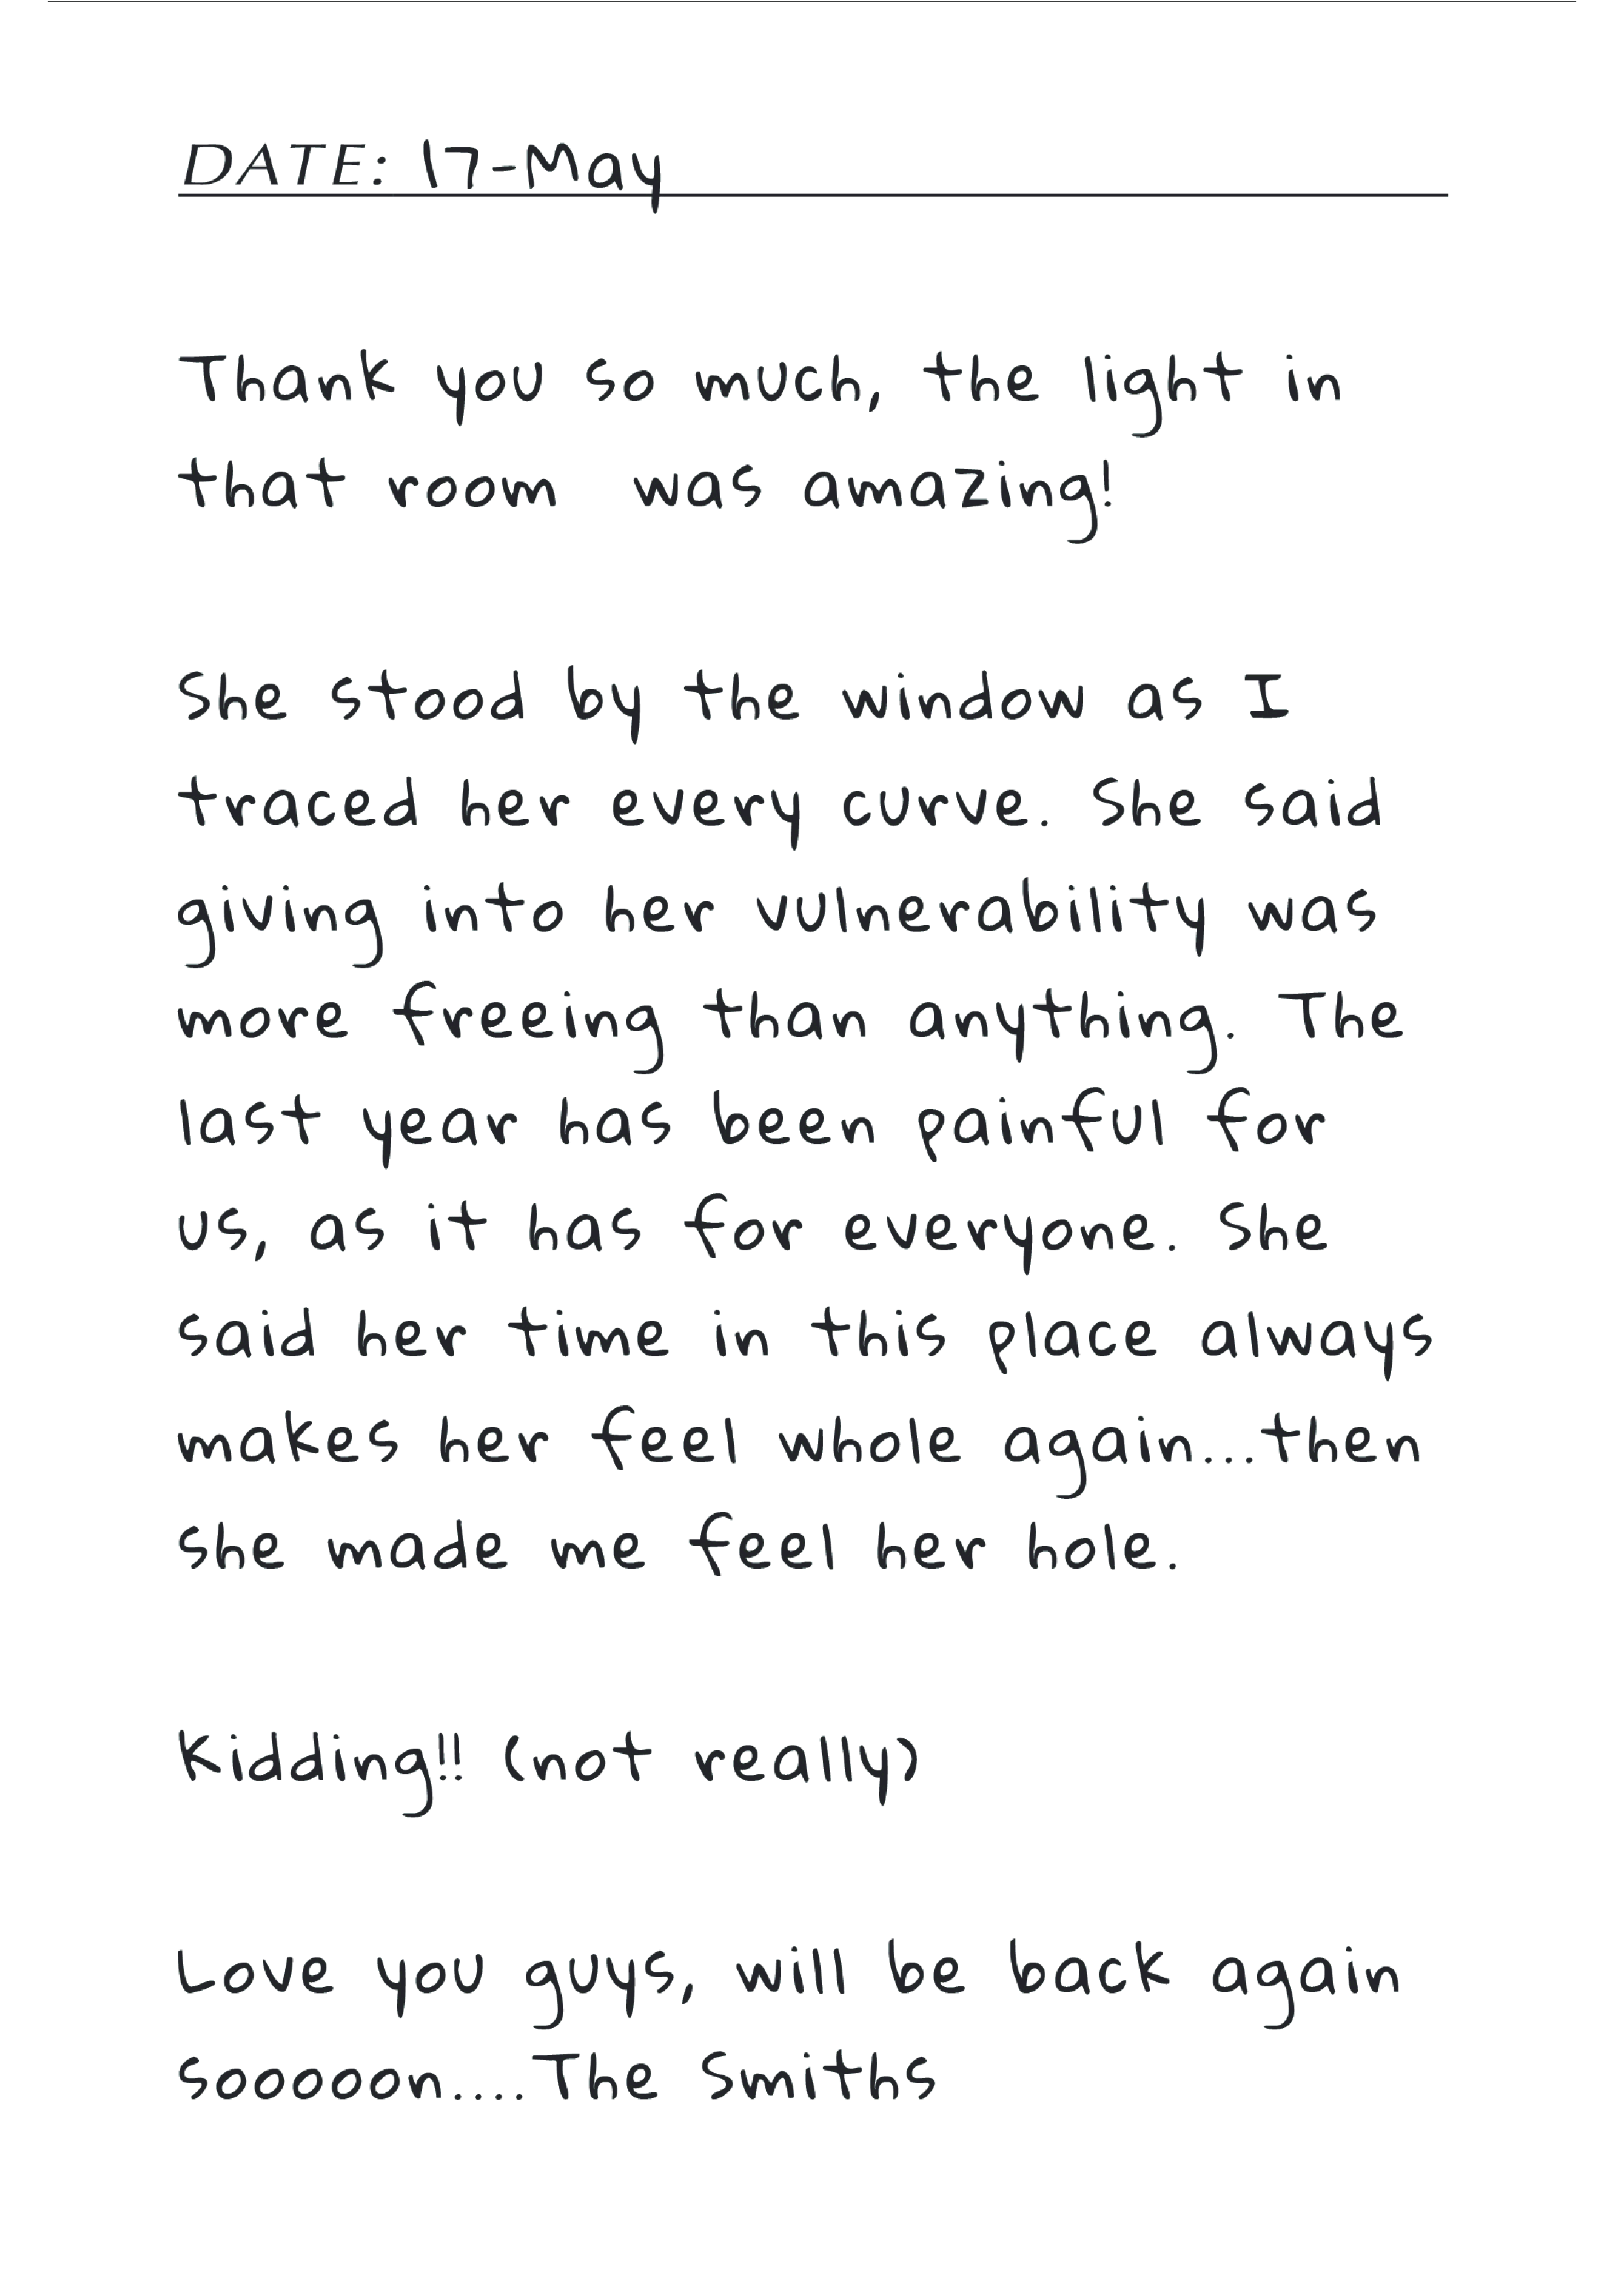 DATE: 17-May
Thank you so much, the light in
that room was amazing!
She stood by the window as I
traced her every curve. She said
giving into her vulnerability was
more freeing than anything. The
last year has been painful for
us, as it has for everyone. She
said her time in this place always
makes her feel whole again...then
she made me feel her hole.
Kidding!! (not really)
Love you guys, will be back again
sooooon....The Smiths